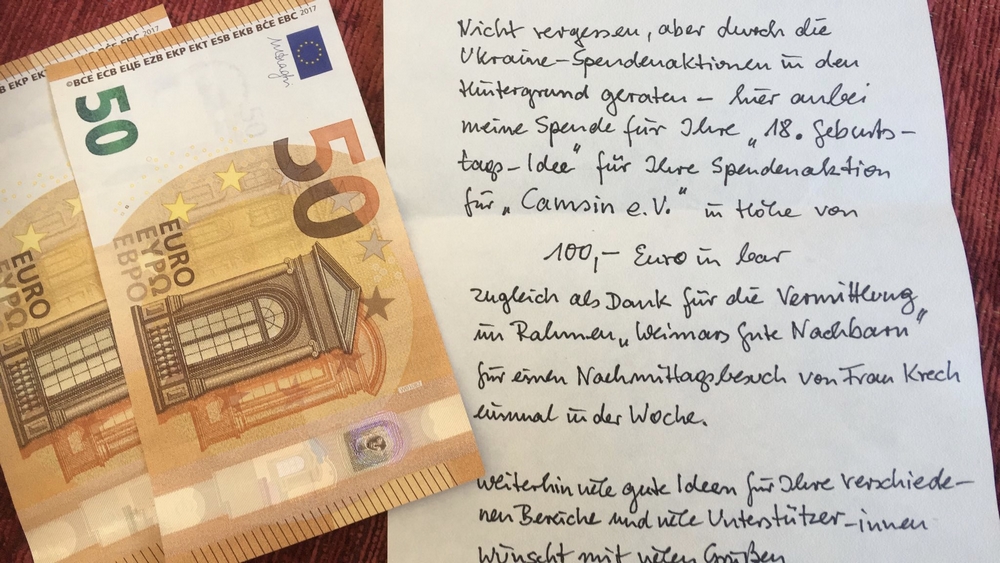 ©BCE ECB ЕЦБ EZB EKP EKT ESB EKB BČE EBC 2017
50
50
EURO
ΕΥΡΩ
ЕВРО
EURO
ΕΥΡΩ
Nicht vergessen, aber durch die
Ukraine-Spendenaktionen in den
Hintergrund geraten – hier anbei
meine Spende für Ihre „18. Geburts-
tags-Idee“ für Ihre Spendenaktion
für „Camsin e.V.“ in Höhe von
100,– Euro in bar
zugleich als Dank für die Vermittlung
im Rahmen „Weimars Gute Nachbarn“
für einen Nachmittagsbesuch von Frau Krech
einmal in der Woche.
Weiterhin viele gute Ideen für Ihre verschiede-
nen Bereiche und viele Unterstützer-innen
wünscht mit vielen Grüßen